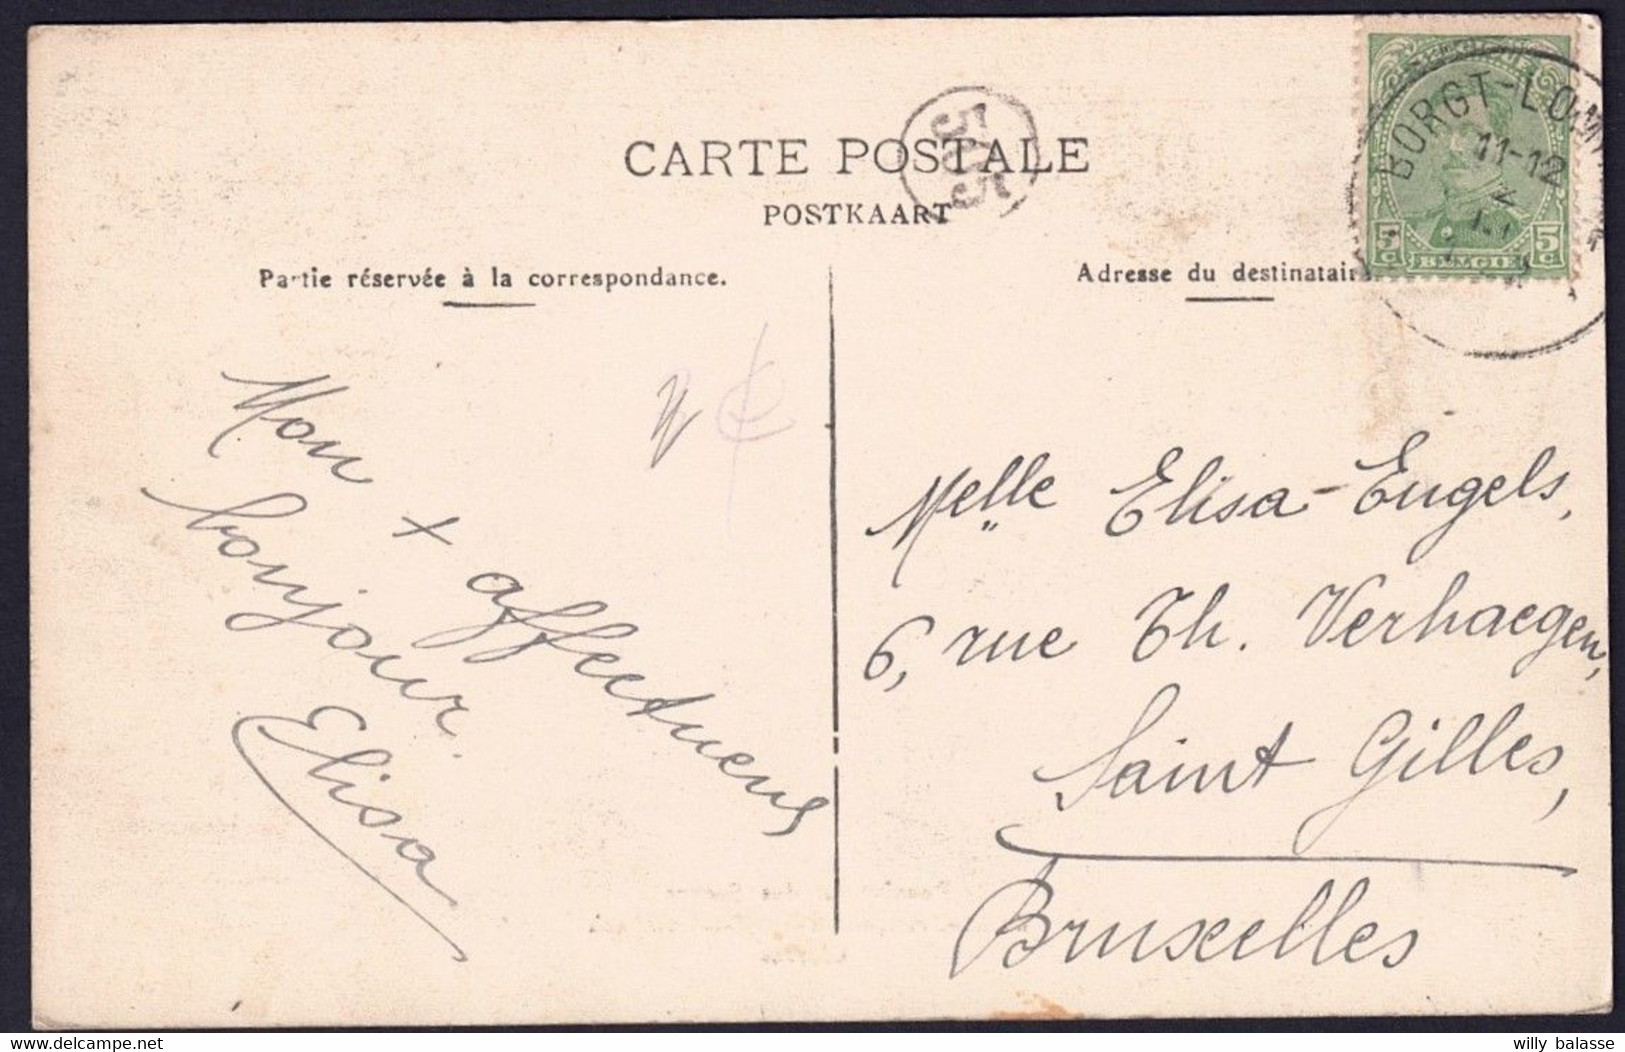 CARTE POSTALE
POSTKAART
505
Partie réservée à la correspondance.
Adresse du destinataire
BORGT-LOM
11-12
5c BELGIE 5c
Mon + affectueux
bonjour.
Elisa
Melle Elisa-Engels,
6, rue Th. Verhaegen,
Saint Gilles,
Bruxelles
willy balasse